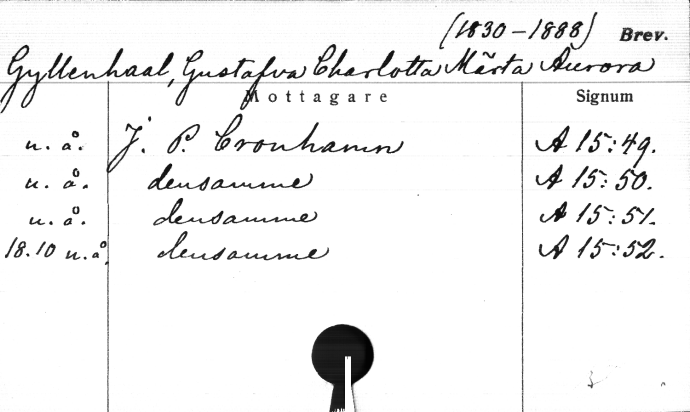 (1830-1888) Brev.
Gyllenhaal, Gustafva Charlotta Märta Aurora
Mottagare Signum
u. å. J. P. Cronhamn A 15:49.
u. å. densamme A 15:50.
u. å. densamme A 15:51.
18.10 u.å. densamme A 15:52.